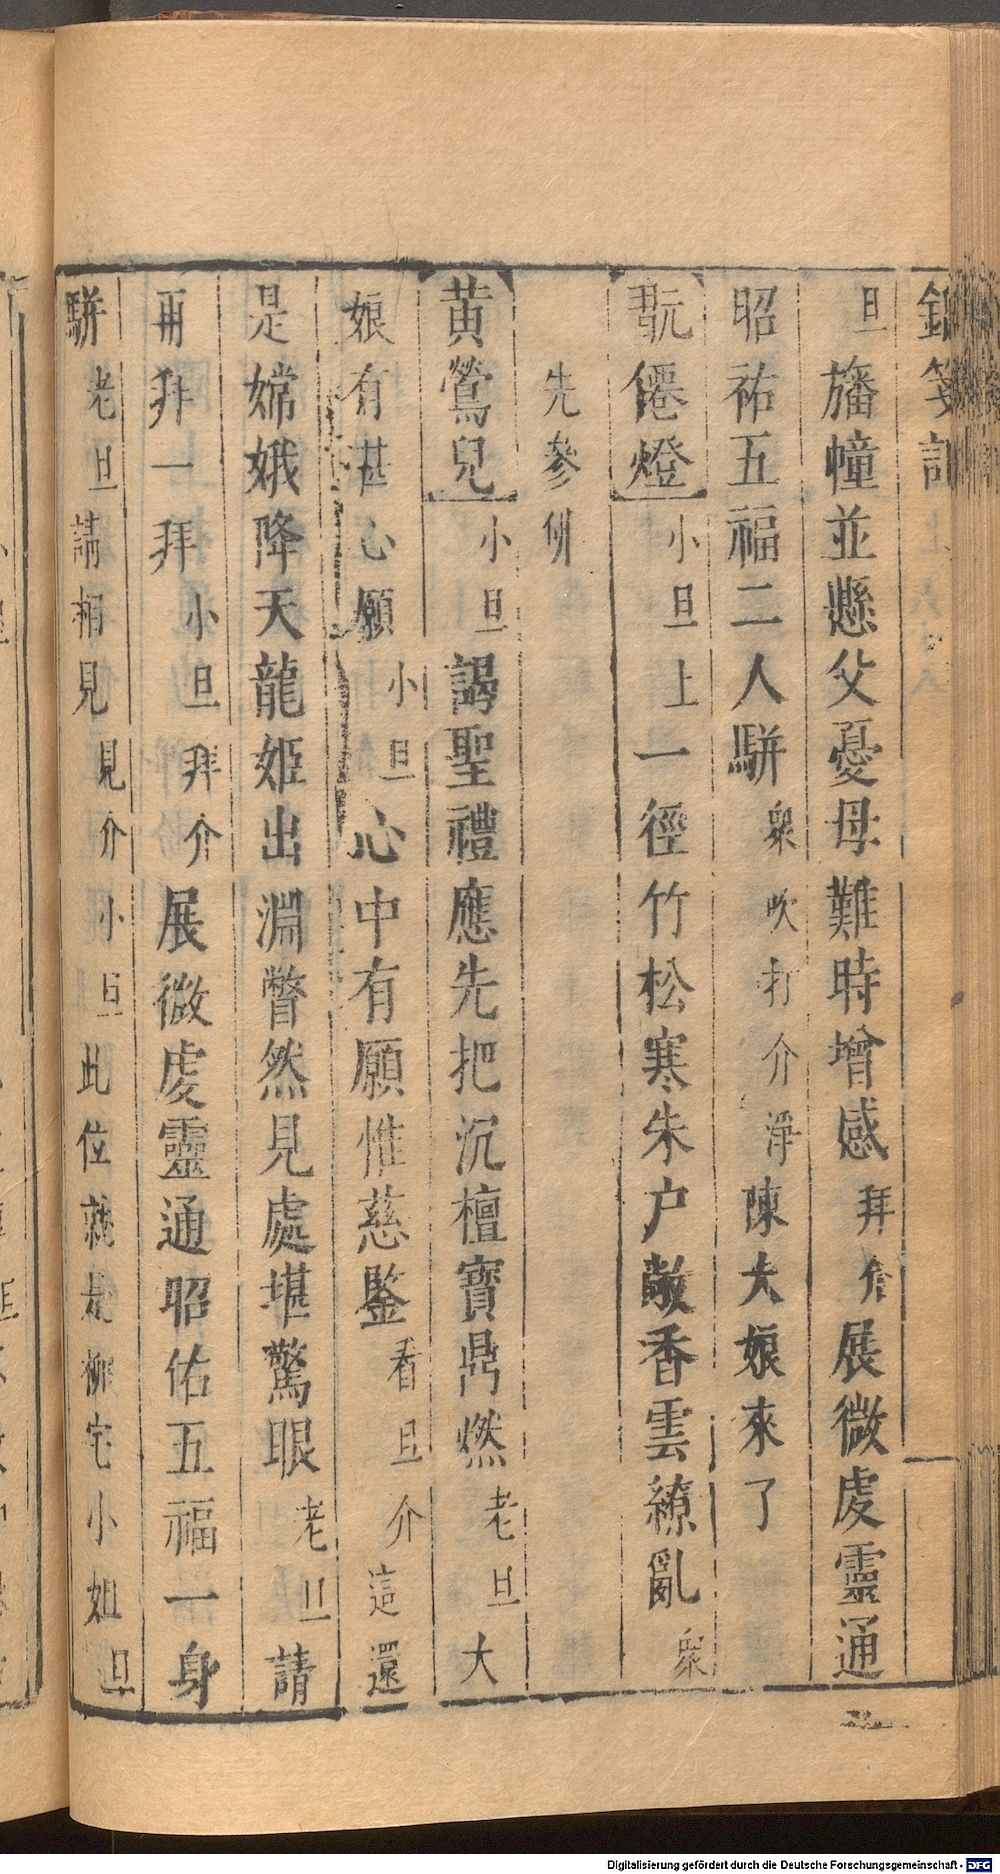 旦旛幢並懸父憂母難時增感拜介展微虔靈通
昭祐五福二人駢衆吹打介淨陳大娘來了
翫僊燈小旦上一徑竹松寒朱户敞香雲繚亂衆
先參佛
黃鶯兒小旦謁聖禮應先把沉檀寶鼎燃老旦大
娘有甚心願小旦心中有願惟慈鑒看旦介這還
是嫦娥降天龍姬出淵瞥然見處堪驚眼老旦請
再拜一拜小旦拜介展微虔靈通昭佑五福一身
駢老旦請相見見介小旦此位就是柳宅小姐旦
Digitalisierung gefördert durch die Deutsche Forschungsgemeinschaft - DFG